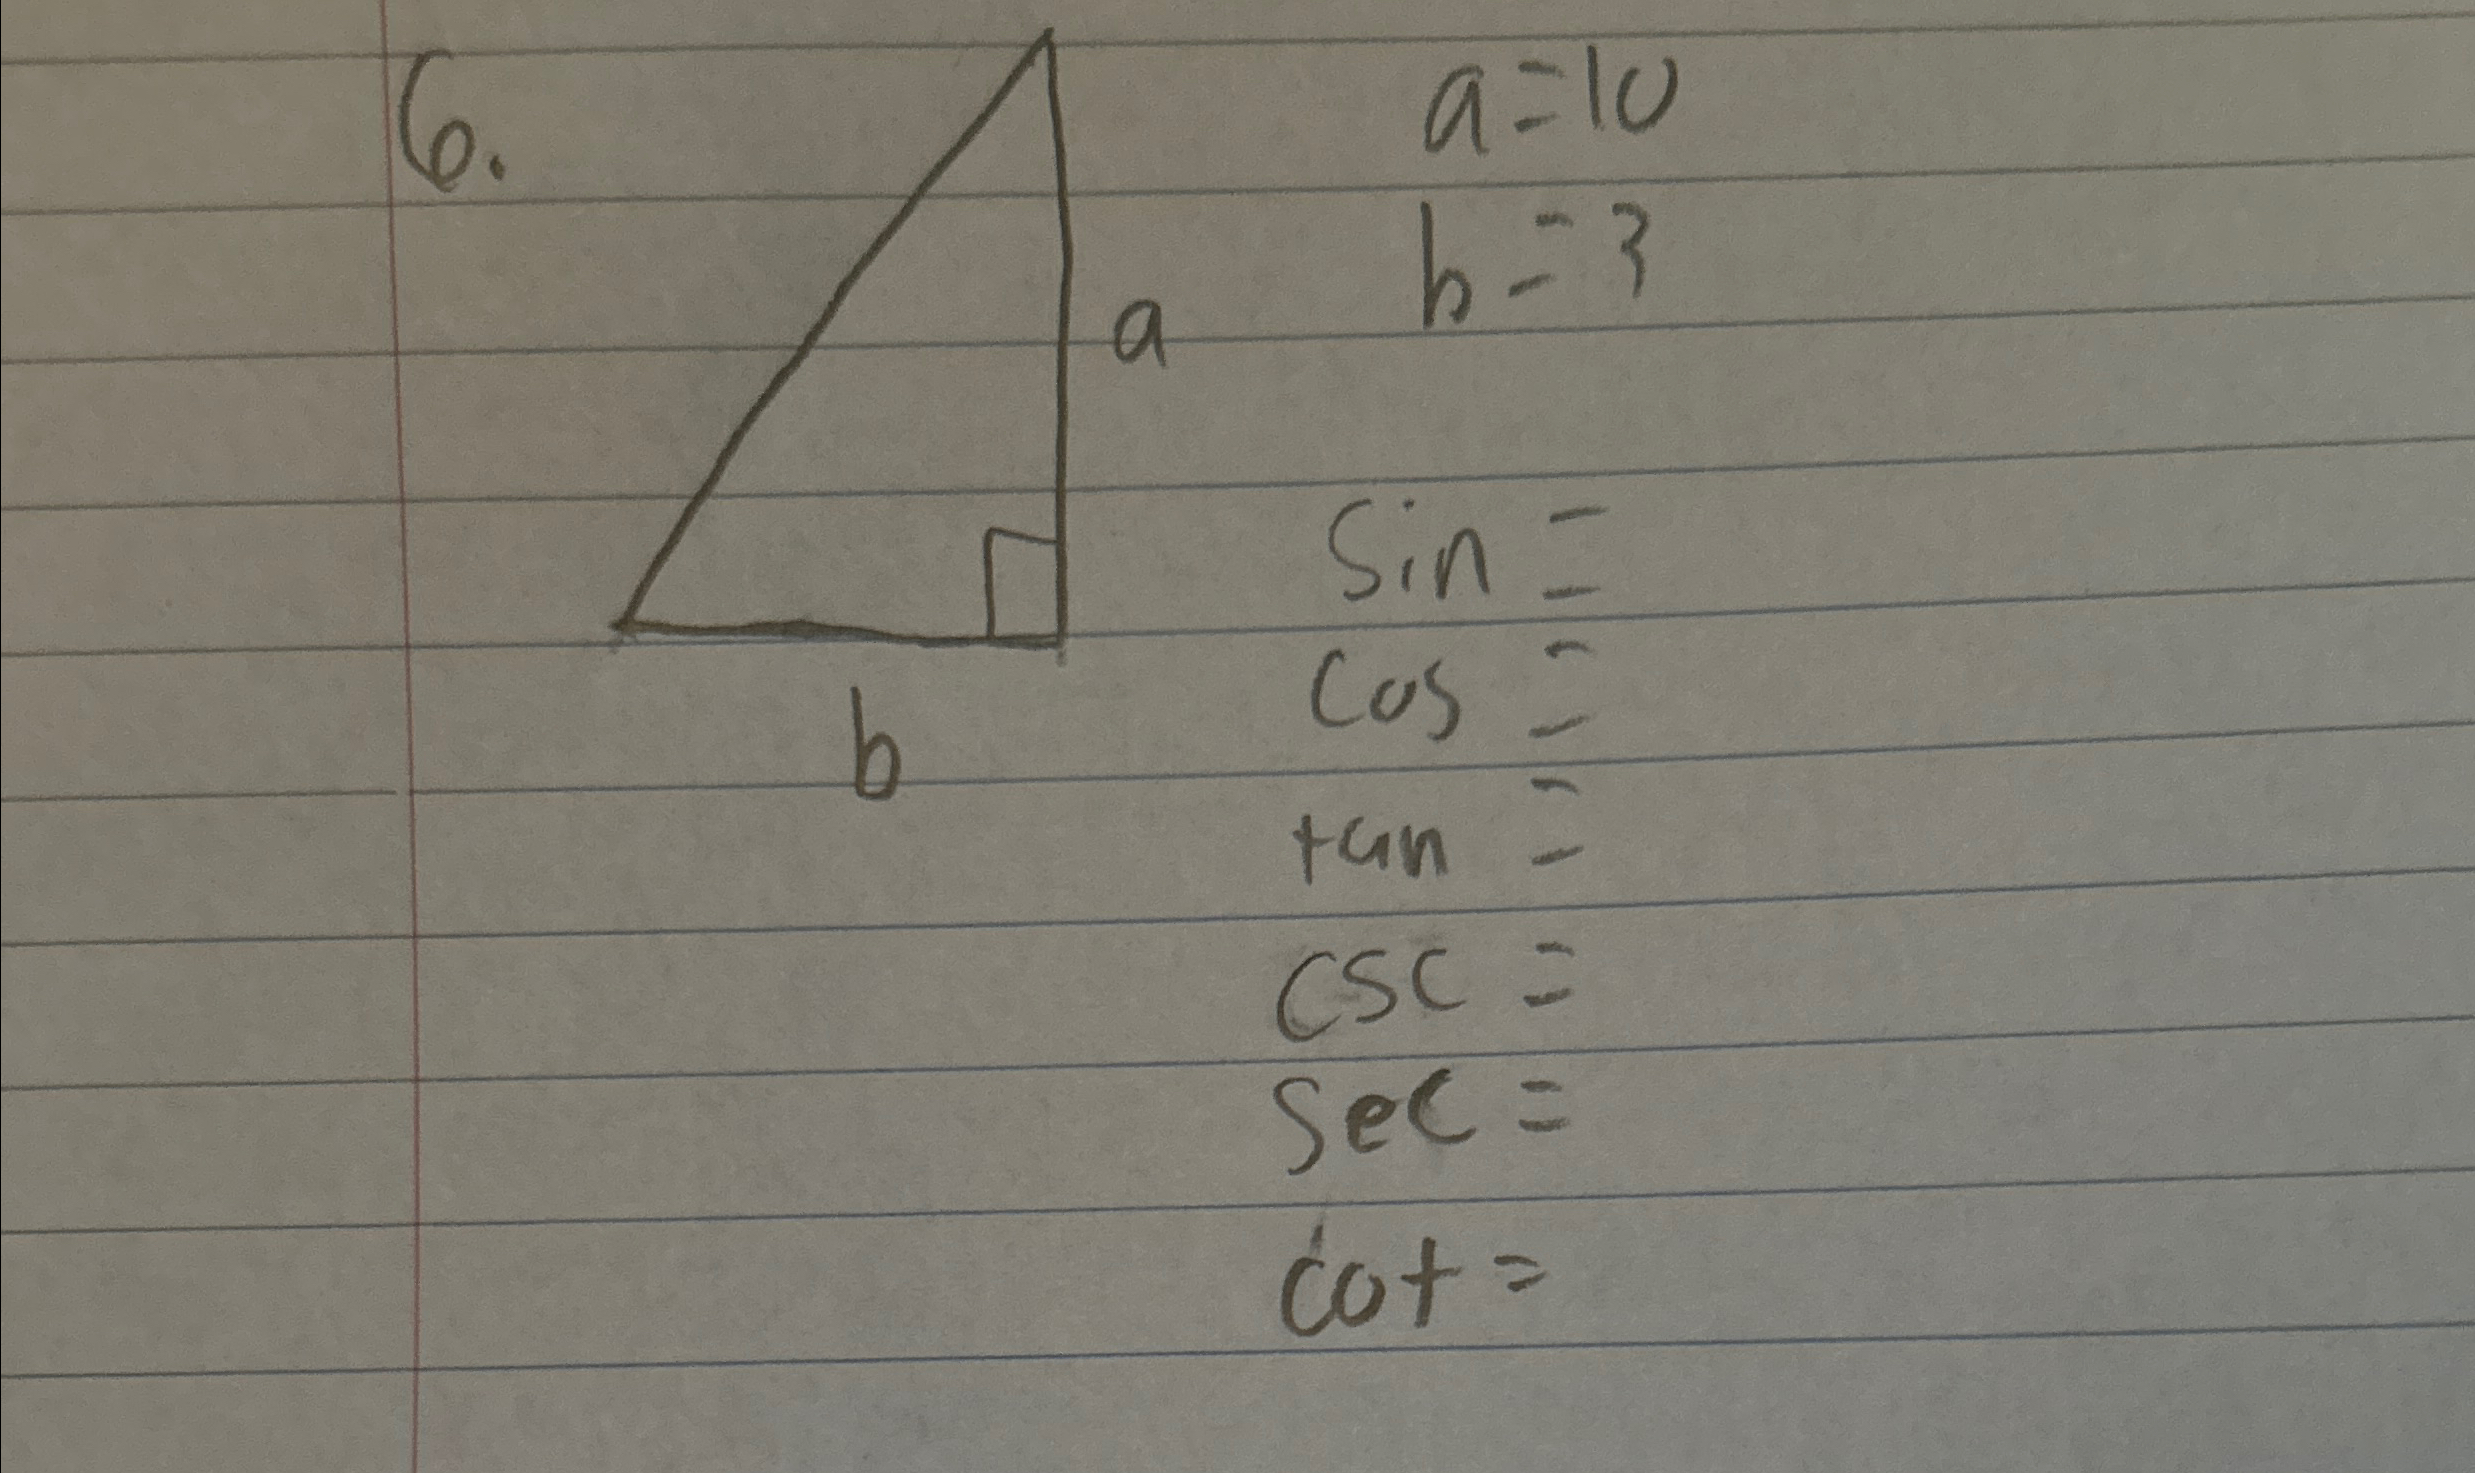 6.
a=10
b=3
a
b
Sin =
Cos =
tan =
csc =
Sec =
cot =